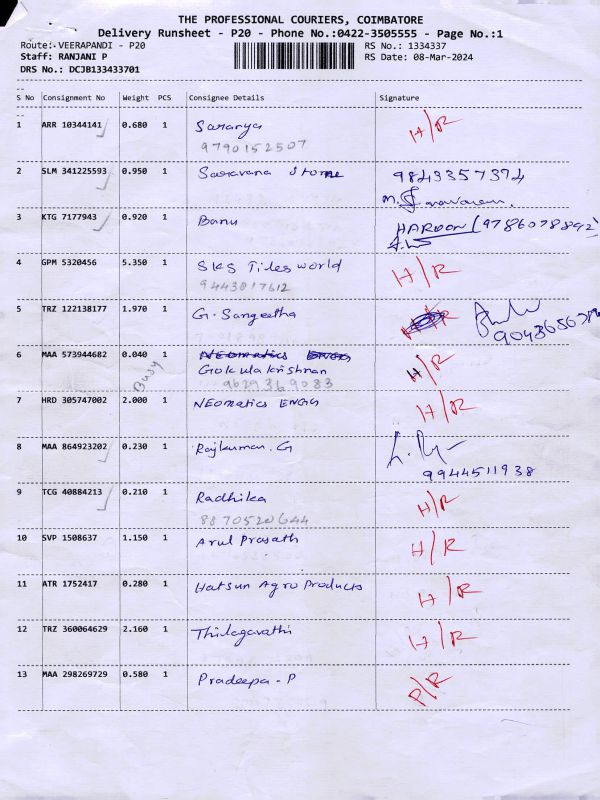 THE PROFESSIONAL COURIERS, COIMBATORE
Delivery Runsheet - P20 - Phone No.:0422-3505555 - Page No.:1
Route: VEERAPANDI - P20 RS No.: 1334337
Staff: RANJANI P RS Date: 08-Mar-2024
DRS No.: DCJB133433701
S No Consignment No Weight PCS Consignee Details Signature
1 ARR 10344141 0.680 1 Saranya H/R
9790152507
2 SLM 341225593 0.950 1 Saravana Stone 9843357374
3 KTG 7177943 0.920 1 Banu HAROON (9786078892)
4 GPM 5320456 5.350 1 SKS Tiles world H/R
9443817612
5 TRZ 122138177 1.970 1 G. Sangeetha
6 MAA 573944682 0.040 1 NEOmatics ENGG H/R
Busy Gokulakrishnan
9629369083
7 HRD 305747002 2.000 1 NEOmatics ENGG H/R
8 MAA 864923202 0.230 1 Rajkumar. G
9944511938
9 TCG 40884213 0.210 1 Radhika H/R
8870520644
10 SVP 1508637 1.150 1 Arul Prasath H/R
11 ATR 1752417 0.280 1 Hatsun Agro Products H/R
12 TRZ 360064629 2.160 1 Thilagavathi H/R
13 MAA 298269729 0.580 1 Pradeepa - P P/R